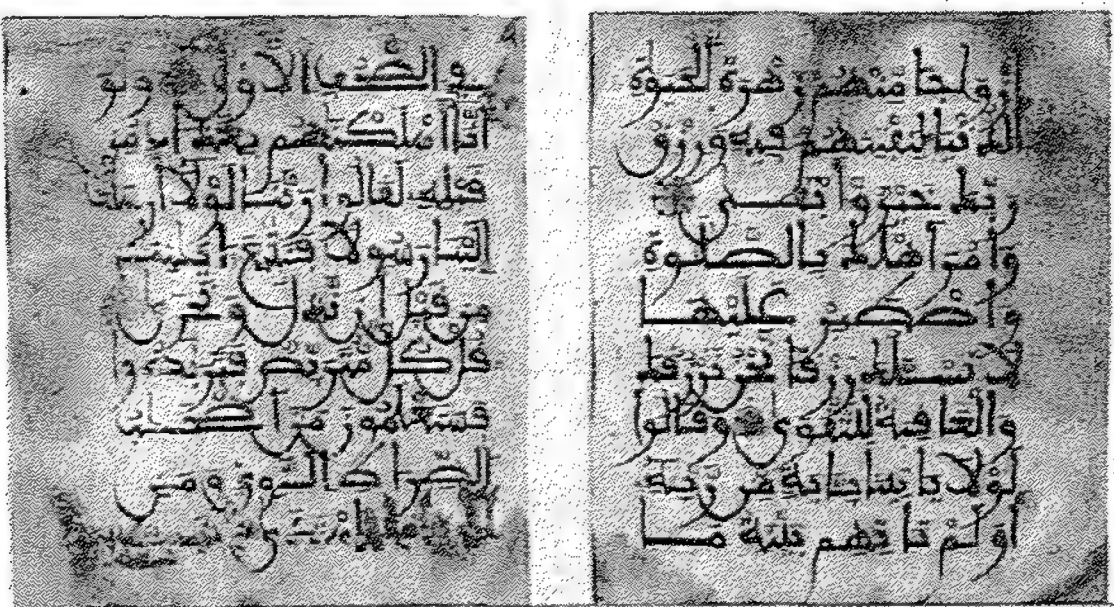 أَزْوَٰجًا مِّنْهُمْ زَهْرَةَ ٱلْحَيَوٰةِ
ٱلدُّنْيَا لِنَفْتِنَهُمْ فِيهِ وَرِزْقُ
رَبِّكَ خَيْرٌ وَأَبْقَىٰ
وَأْمُرْ أَهْلَكَ بِٱلصَّلَوٰةِ
وَٱصْطَبِرْ عَلَيْهَا
لَا نَسْـَٔلُكَ رِزْقًا نَّحْنُ نَرْزُقُكَ
وَٱلْعَٰقِبَةُ لِلتَّقْوَىٰ وَقَالُوا
لَوْلَا يَأْتِينَا بِـَٔايَةٍ مِّن رَّبِّهِ
أَوَلَمْ تَأْتِهِم بَيِّنَةُ مَا
فِي ٱلصُّحُفِ ٱلْأُولَىٰ وَلَوْ
أَنَّا أَهْلَكْنَٰهُم بِعَذَابٍ مِّن
قَبْلِهِ لَقَالُوا رَبَّنَا لَوْلَا أَرْسَلْتَ
إِلَيْنَا رَسُولًا فَنَتَّبِعَ ءَايَٰتِكَ
مِن قَبْلِ أَن نَّذِلَّ وَنَخْزَىٰ
قُلْ كُلٌّ مُّتَرَبِّصٌ فَتَرَبَّصُوا
فَسَتَعْلَمُونَ مَنْ أَصْحَٰبُ
ٱلصِّرَٰطِ ٱلسَّوِيِّ وَمَنِ